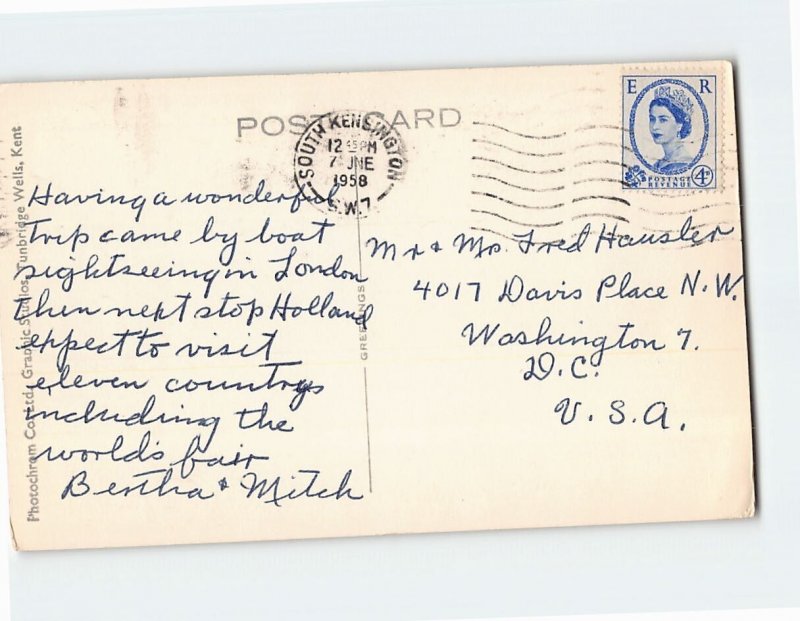 POST CARD
SOUTH KENSINGTON
12 45 PM
7 JNE
1958
S.W.7
E R
POSTAGE
REVENUE
4D
Having a wonderful
trip came by boat
sightseeing in London
then next stop Holland
expect to visit
eleven countrys
including the
world's fair
Bertha & Mitch
Mr & Mrs. Fred Hausler
4017 Davis Place N.W.
Washington 7.
D.C.
U.S.A.
GREETINGS
Photochrom Co. Ltd., Graphic Studios, Tunbridge Wells, Kent